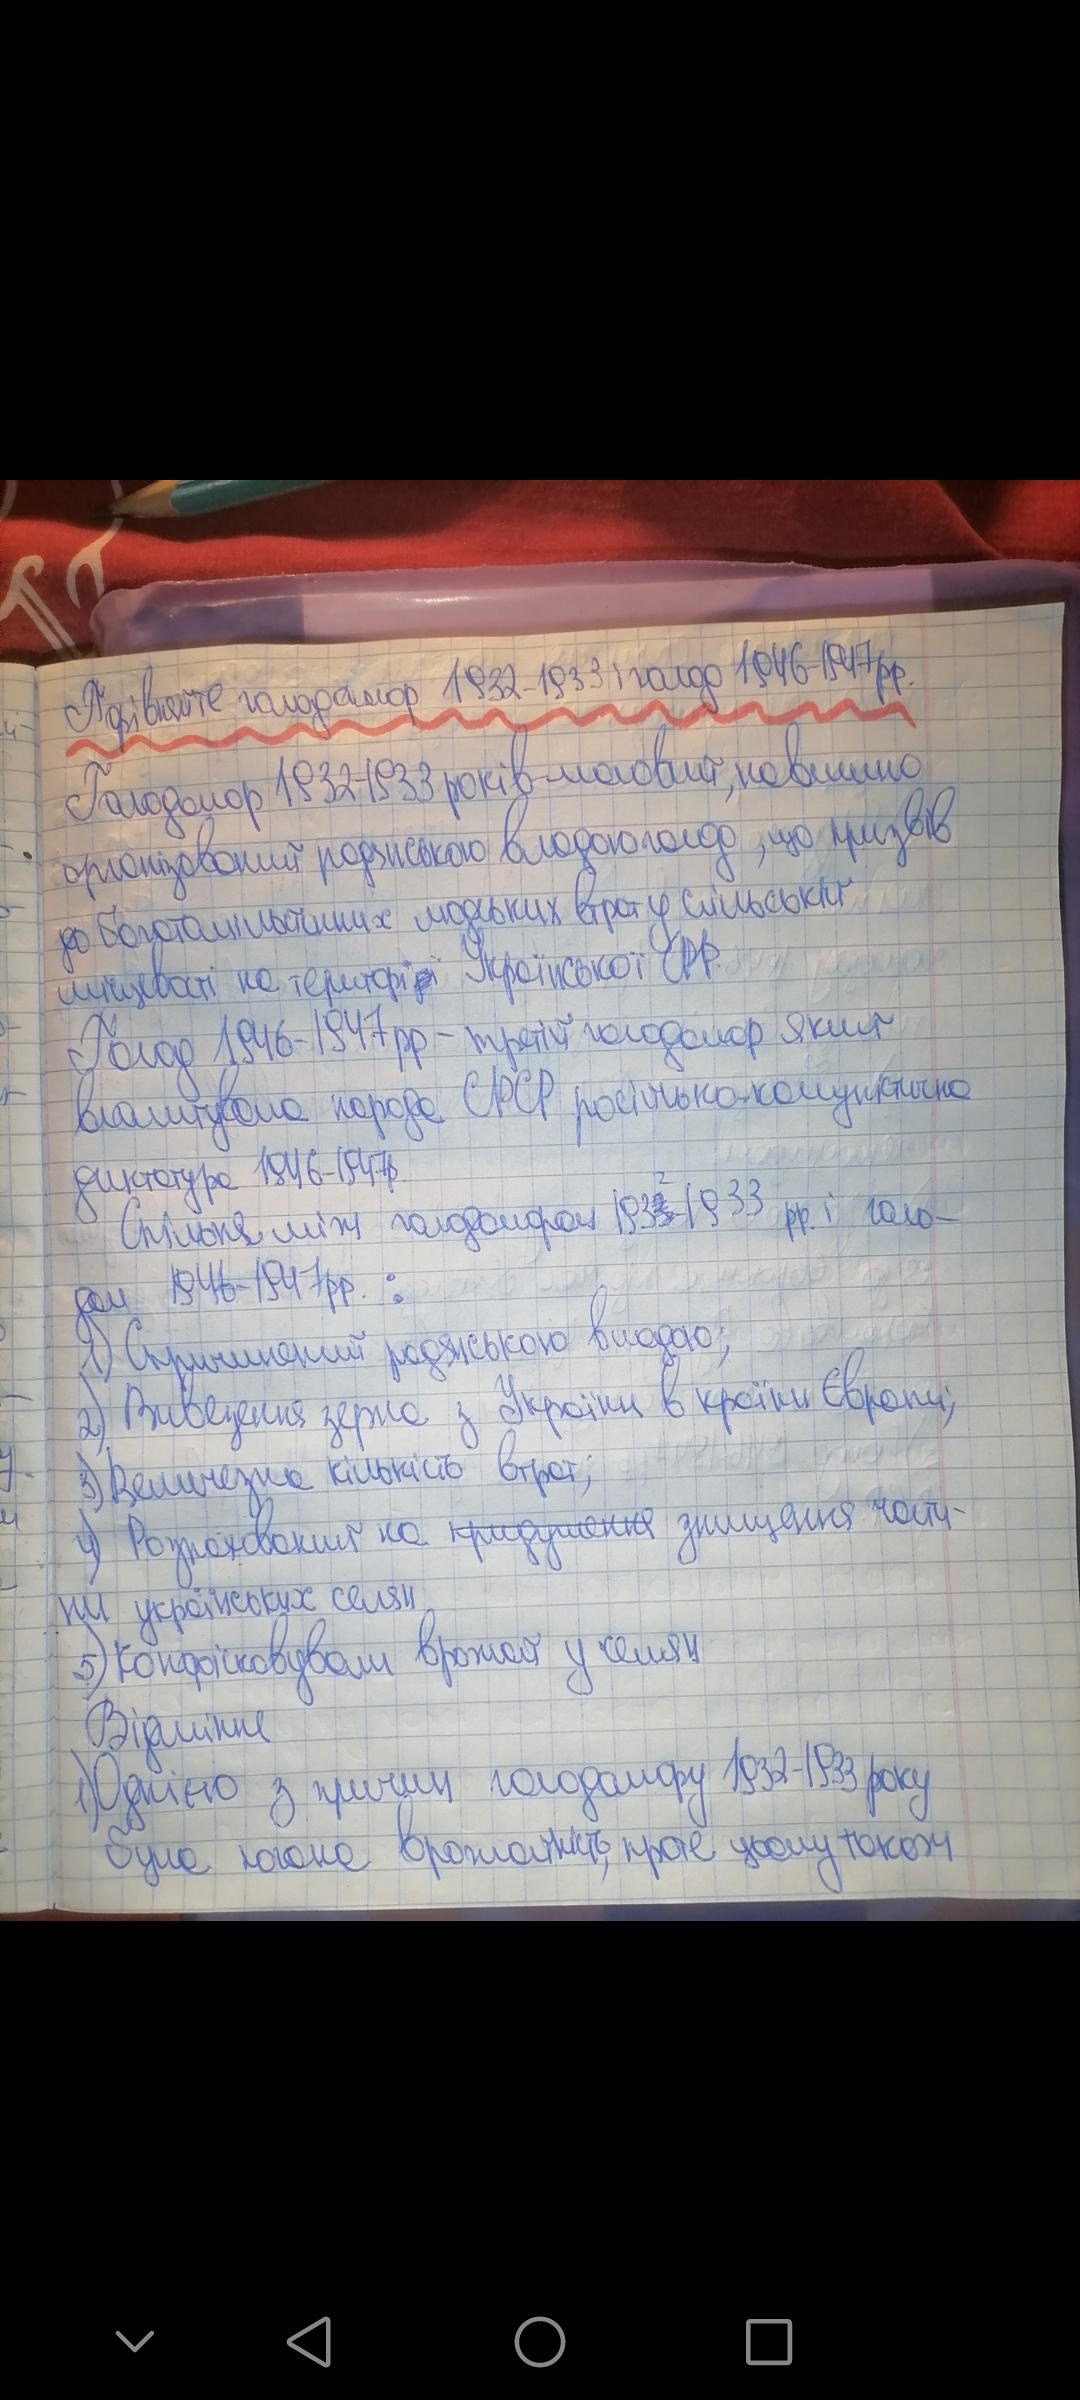 Порівняйте голодомор 1932-1933 і голод 1946-1947 рр.
Голодомор 1932-1933 років-масовий, навмисно
організований радянською владою голод, що призвів
до багатомільйонних людських втрат у сільській
місцевості на території Української СРР.
Голод 1946-1947 рр - третій голодомор який
влаштувала народа СРСР російсько-комуністична
диктатура 1946-1947р.
Спільне між голодомором 1932-1933 рр. і голо-
дом 1946-1947 рр. :
1) Спричинений радянською владою;
2) Вивезення зерна з України в країни Європи;
3) Величезна кількість втрат;
4) Розрахований на придушення знищення части-
ни українських селян
5) Конфісковували врожай у селян
Відмінне
1) Однією з причин голодомору 1932-1933 року
була погана врожайність, проте цьому також